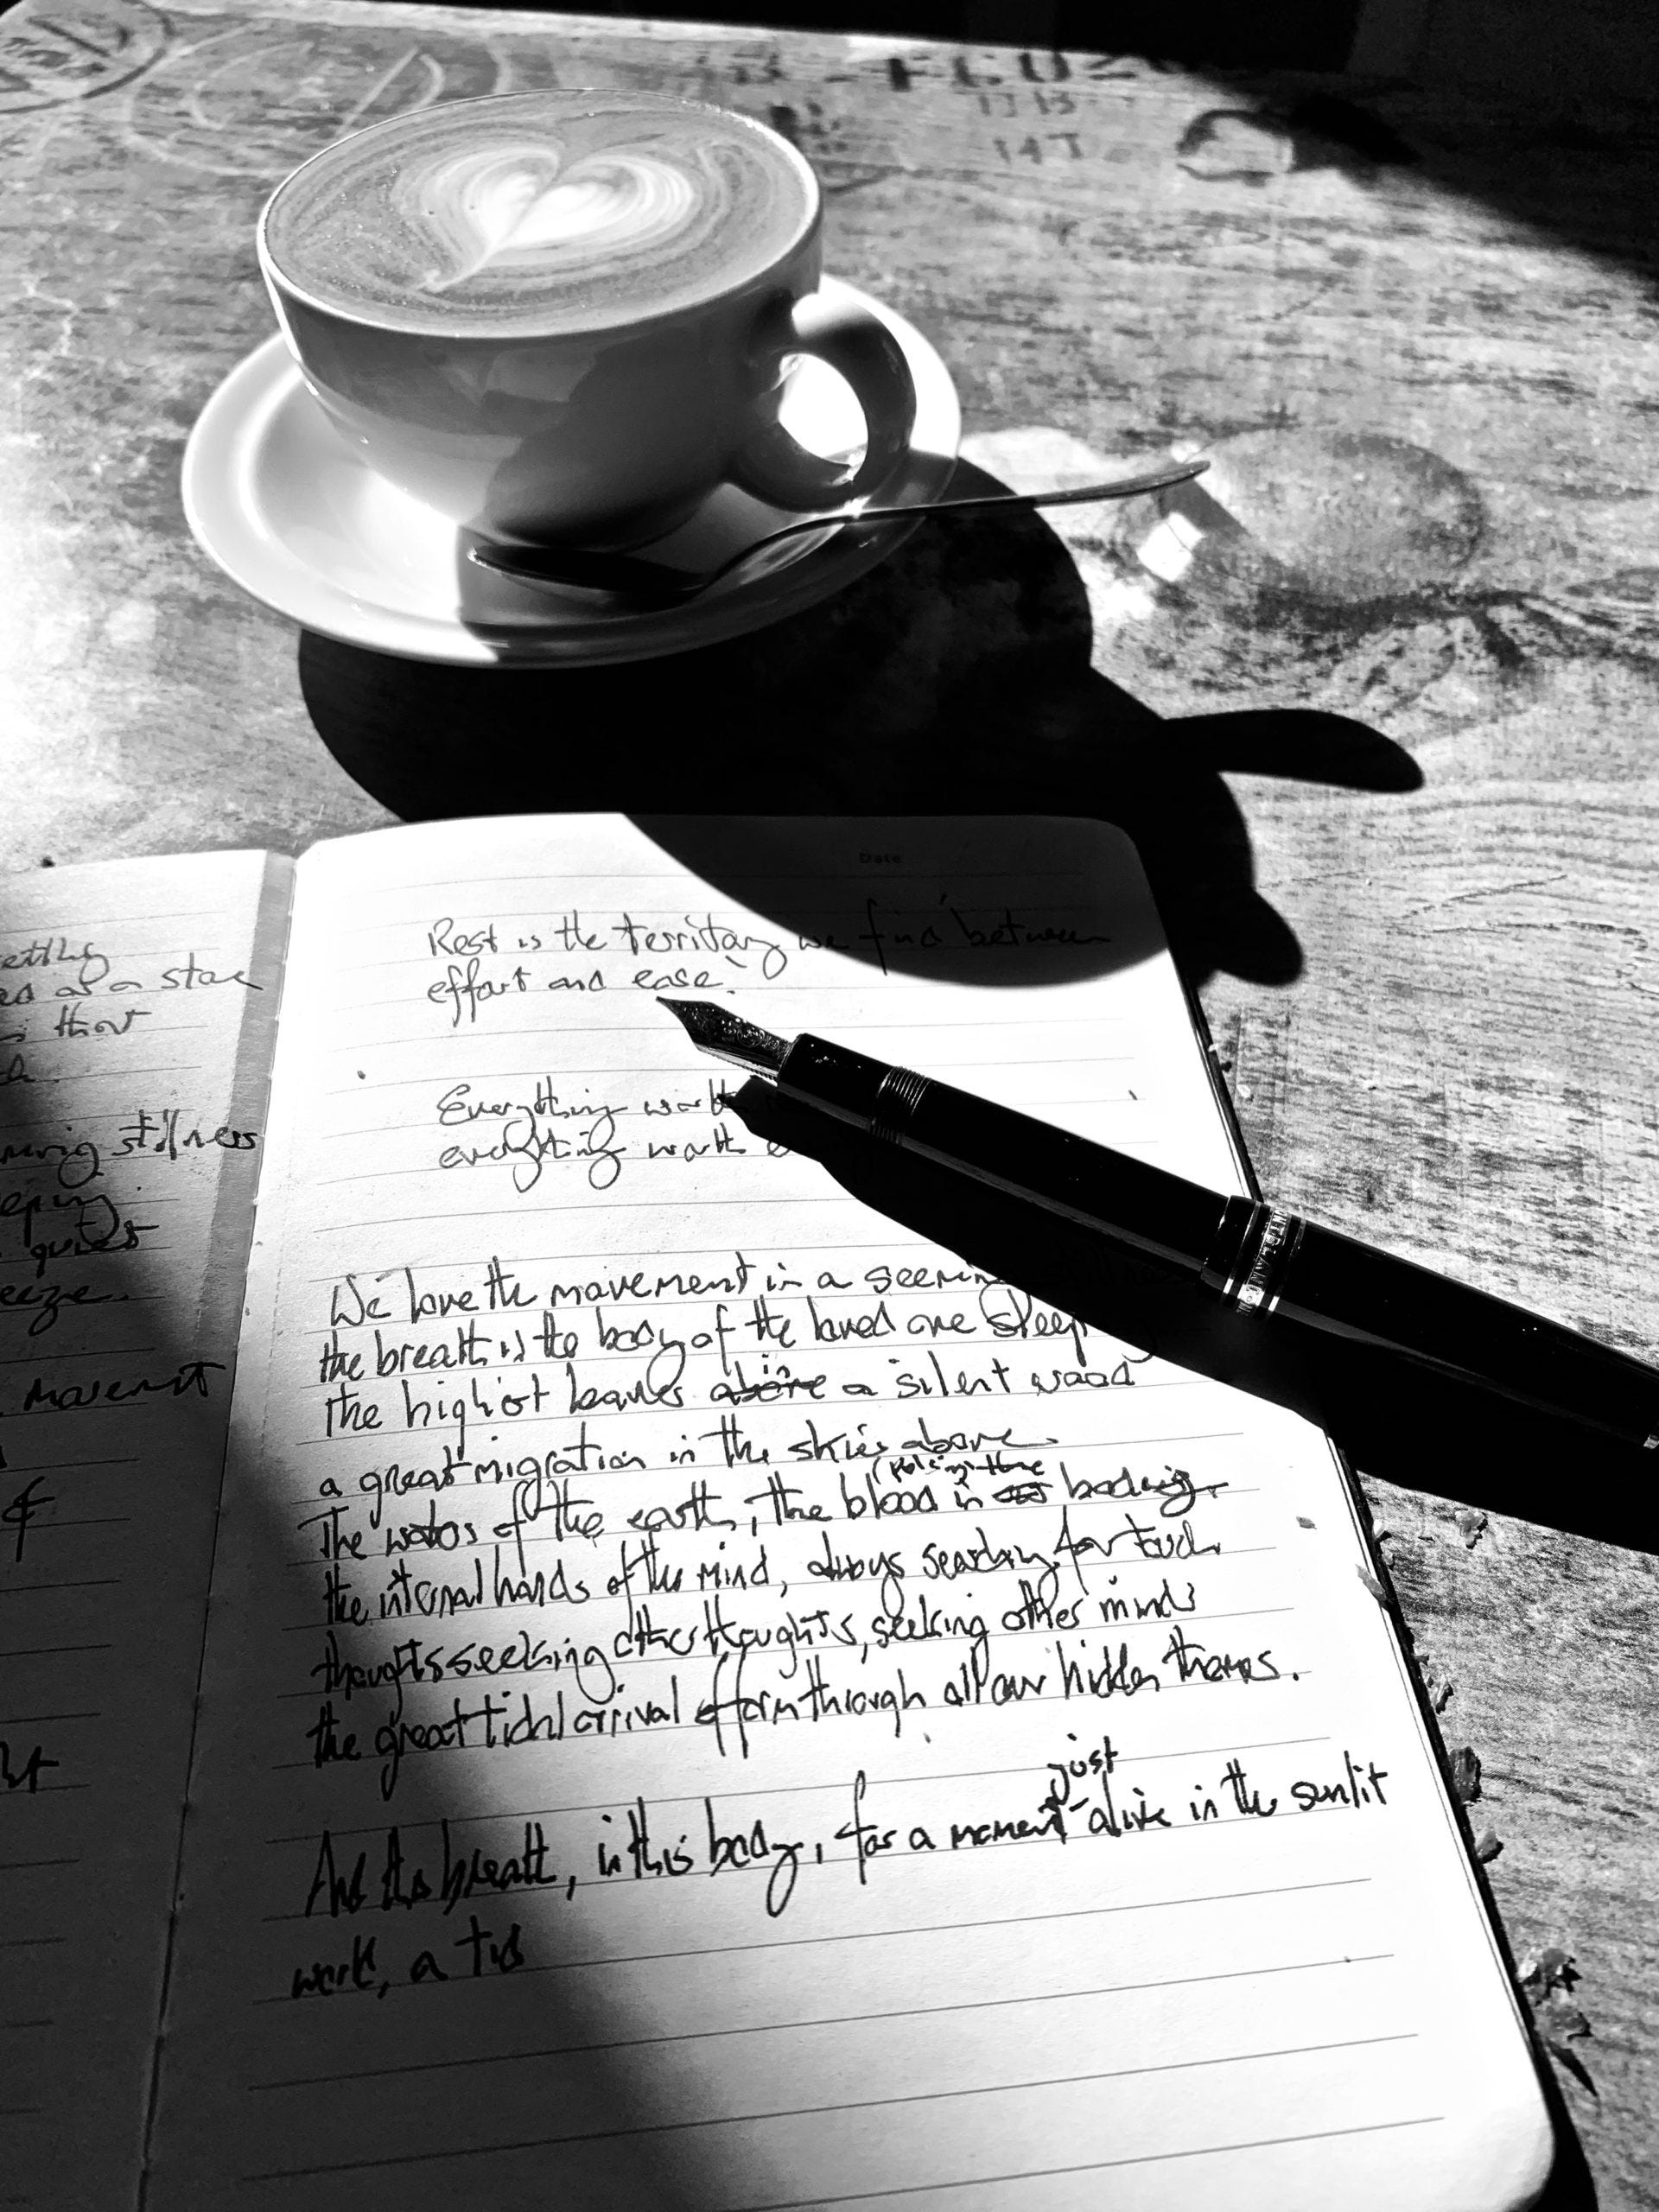 13 15
14 T
Date
Rest is the territory we find between
effort and ease.
Everything worth
everything worth
We love the movement in a seeming
the breath is the body of the loved one sleep
the highest leaves above in a silent wood
a great migration in the skies above.
The waters of the earth, the blood in
the internal hands of the mind, always searching for touch
thoughts seeking other thoughts, seeking other minds
the great tidal arrival of form through all our hidden themes.
And this breath, in this body, for a moment just alive in the sunlit
work, a
a star
that
stillness
quiet
eeze.
movement
&
MONTBLANC